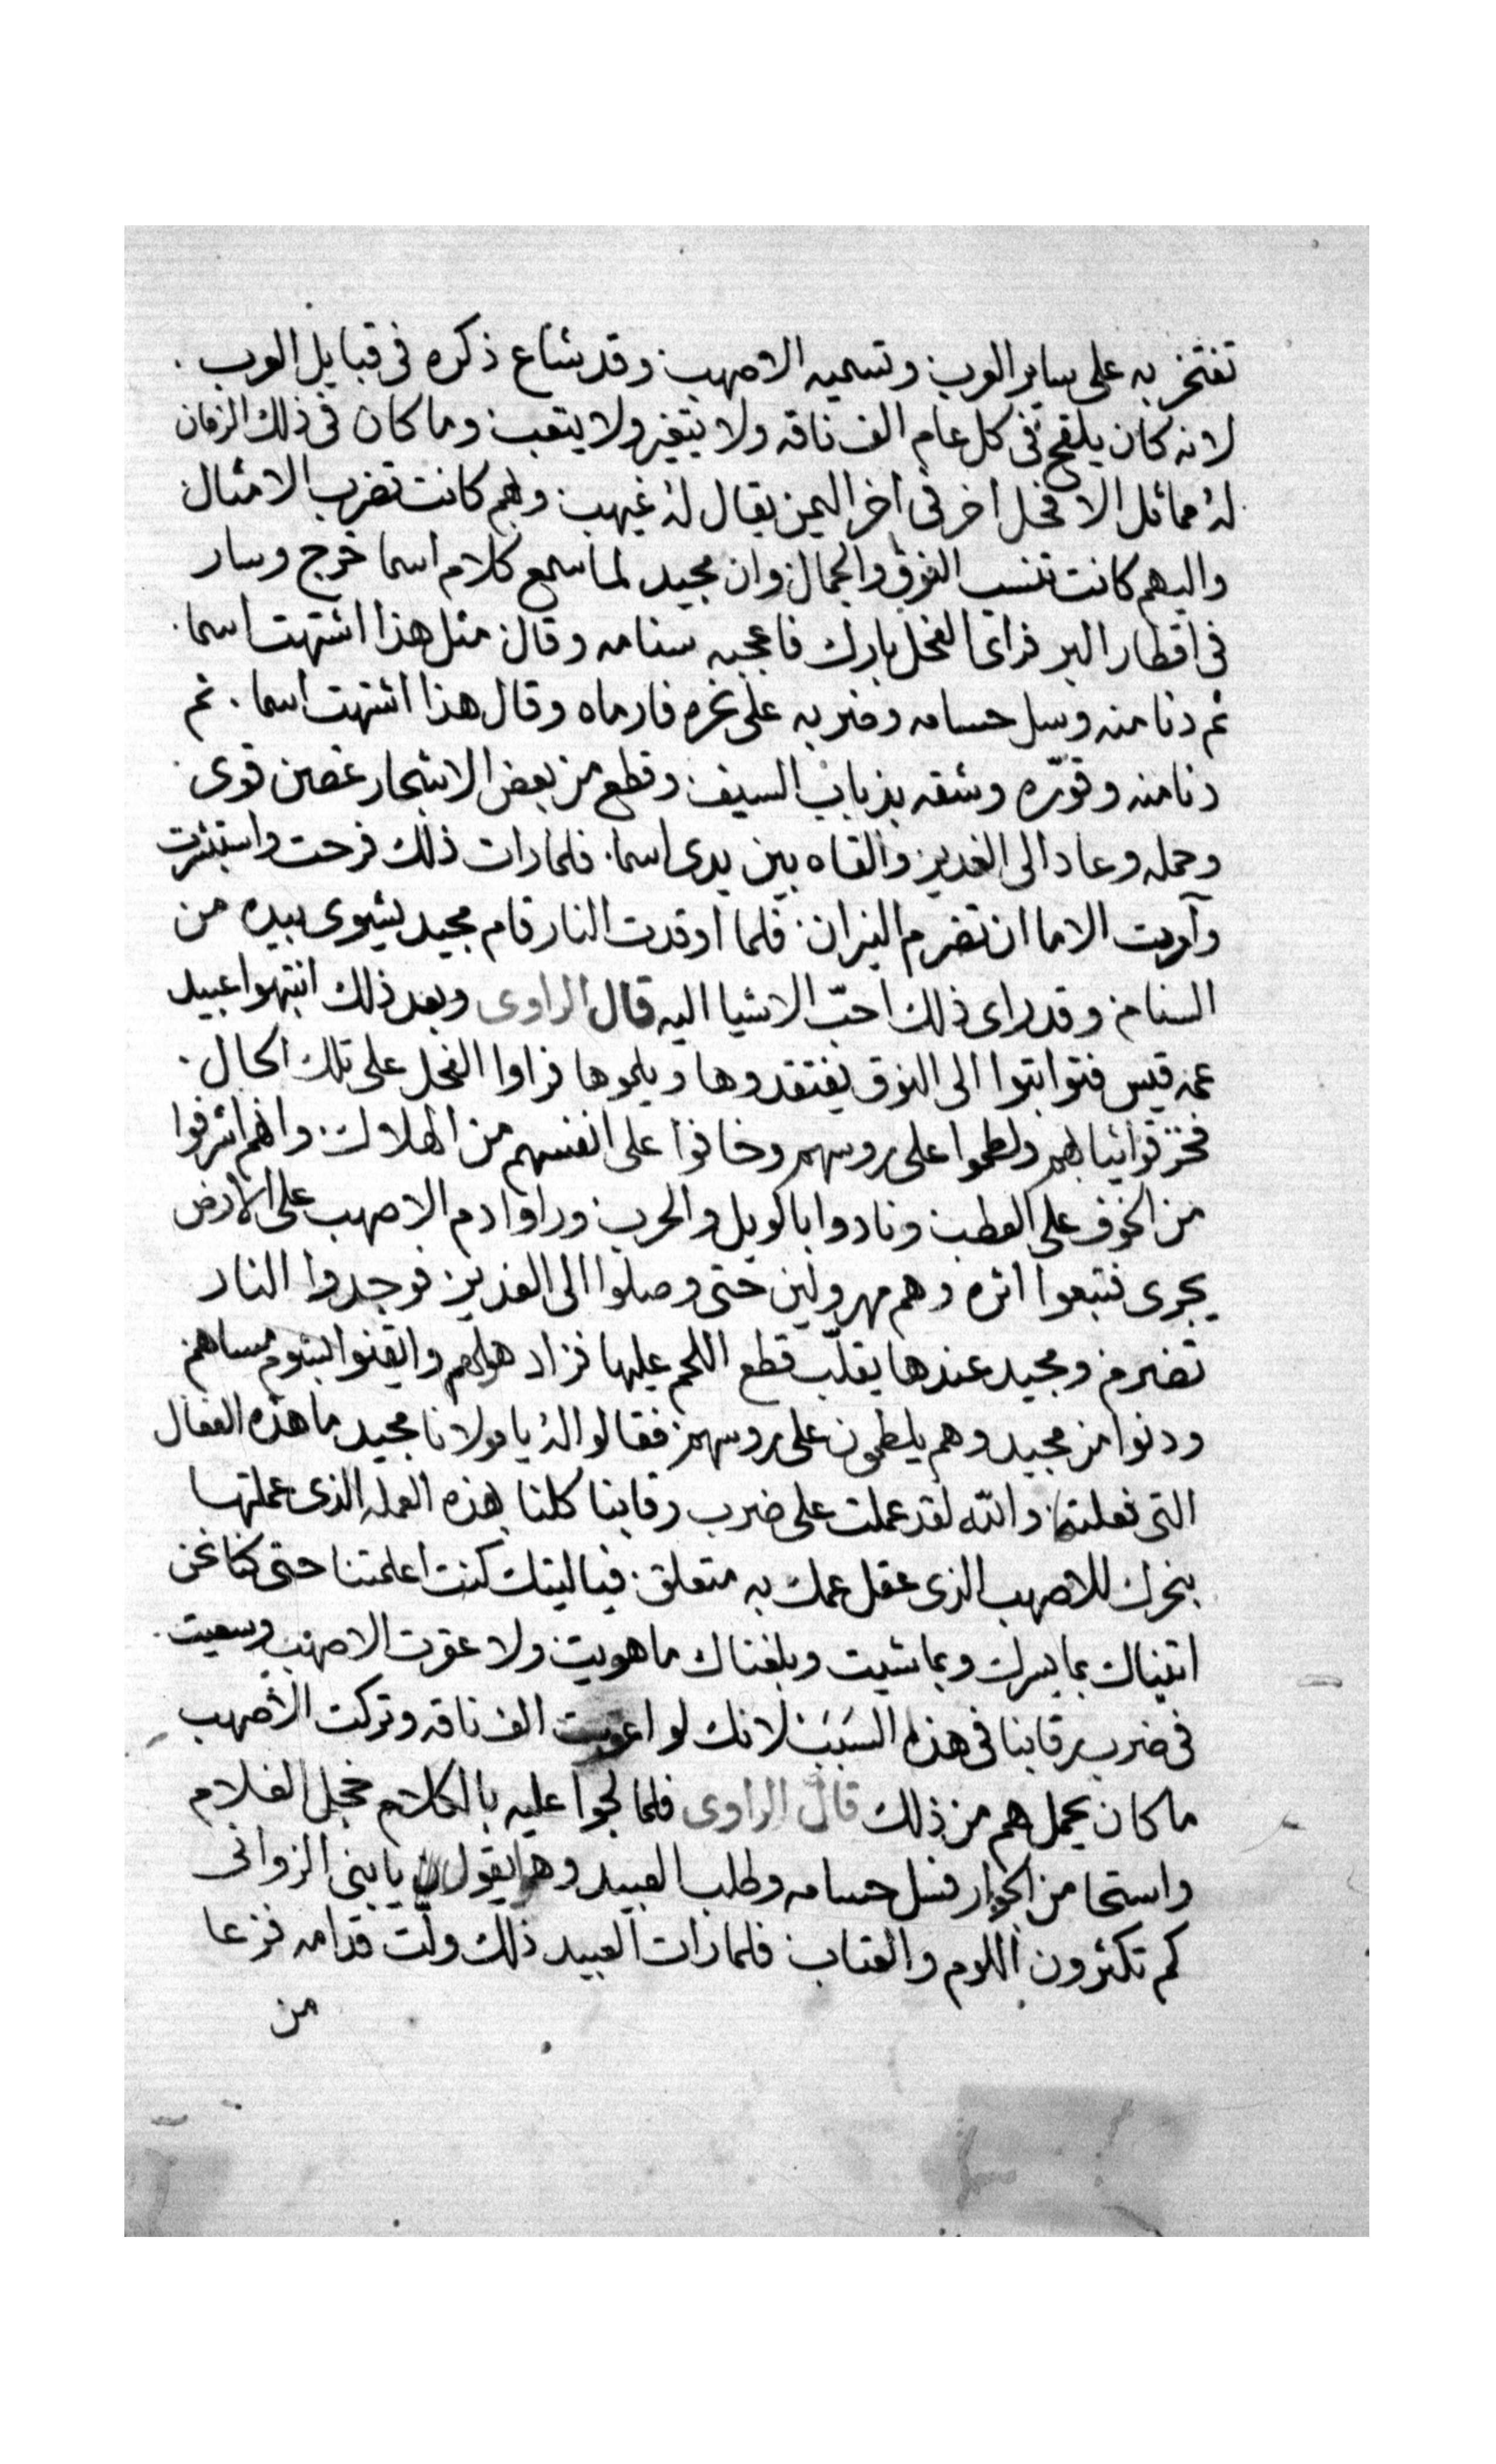 تفتخر به على ساير العرب وتسميه الاصهب وقد شاع ذكره فى قبايل العرب
لانه كان يلقح فى كل عام الف ناقه ولا يتغير ولا يتعب وما كان فى ذلك الزمان
له مماثل الا فحل اخر فى اخر اليمن يقال له غيهب وبهم كانت تضرب الامثال
واليهم كانت تنسب النوق والجمال وان مجيد لما سمع كلام اسما خرج وسار
فى اقطار البر فراى الفحل بارك فاعجبه سنامه وقال مثل هذا اشتهت اسما
ثم دنا منه وسل حسامه وضربه على نحره فارماه وقال هذا اشتهت اسما ثم
دنا منه وقوّره وشقه بذباب السيف وقطع من بعض الاشجار غصين قوى
وحمله وعاد الى الغدير والقاه بين يدى اسما فلما رات ذلك فرحت واستبشرت
وآمرت الاما ان تضرم النيران فلما اوقدت النار قام مجيد يشوى بيده من
السنام وقد راى ذلك احبّ الاشيا اليه قال الراوى وبعد ذلك انتبهوا عبيد
عمه قيس فتواثبوا الى النوق يفتقدوها ويلموها فراوا الفحل على تلك الحال
فخزقوا ثيابهم ولطموا على روسهم وخافوا على انفسهم من الهلاك وانهم اشرفوا
من الخوف على العطب ونادوا بالويل والحرب وراوا دم الاصهب على الارض
يجرى فتبعوا اثره وهم مهرولين حتى وصلوا الى الغدير فوجدوا النار
تضرم ومجيد عندها يقلّب قطع اللحم عليها فزاد هولهم وايقنوا بشوم مساهم
ودنوا من مجيد وهم يلطمون على روسهم فقالوا له يا مولانا مجيد ما هذه الفعال
التى فعلتها والله لقد عملت على ضرب رقابنا كلنا بهذه العمله الذى عملتها
بنحرك للاصهب الذى عقل عمك به متعلق فياليتك كنت اعلمتنا حتى كنا نحن
اتيناك بما يسرك وبما شيت وبلغناك ما هويت ولا عقرت الاصهب وسعيت
فى ضرب رقابنا فى هذا السَبَبَ لانك لو اعقرت الف ناقه وتركت الاصهب
ما كان يحمل هم من ذلك قال الراوى فلما لجوا عليه بالكلام خجل الغلام
واستحا من الجوار فسل حسامه وطلب العبيد وهو يقول يا بنى الزوانى
كم تكثرون اللوم والعتاب فلما رات العبيد ذلك ولّت قدامه فزعا
من